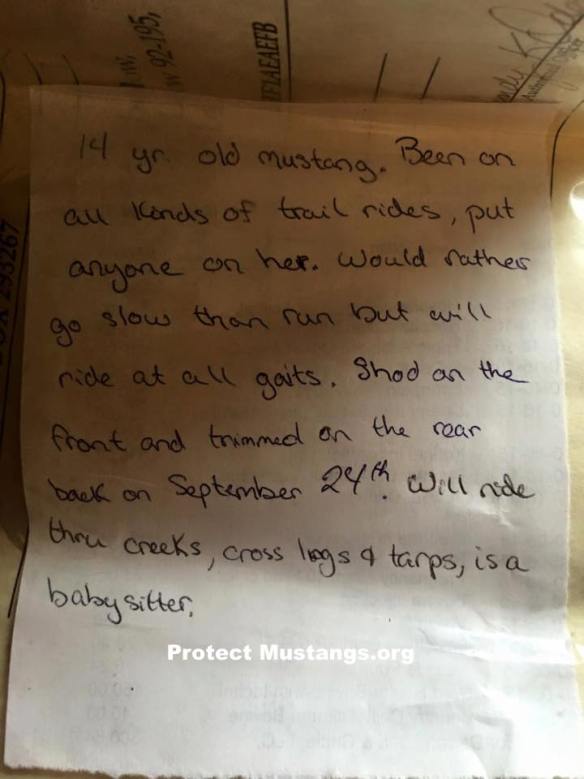 14 yr. old mustang. Been on
all kinds of trail rides, put
anyone on her. Would rather
go slow than run but will
ride at all gaits. Shod on the
front and trimmed on the rear
back on September 24th. Will ride
thru creeks, cross logs & tarps, is a
babysitter.
Protect Mustangs.org